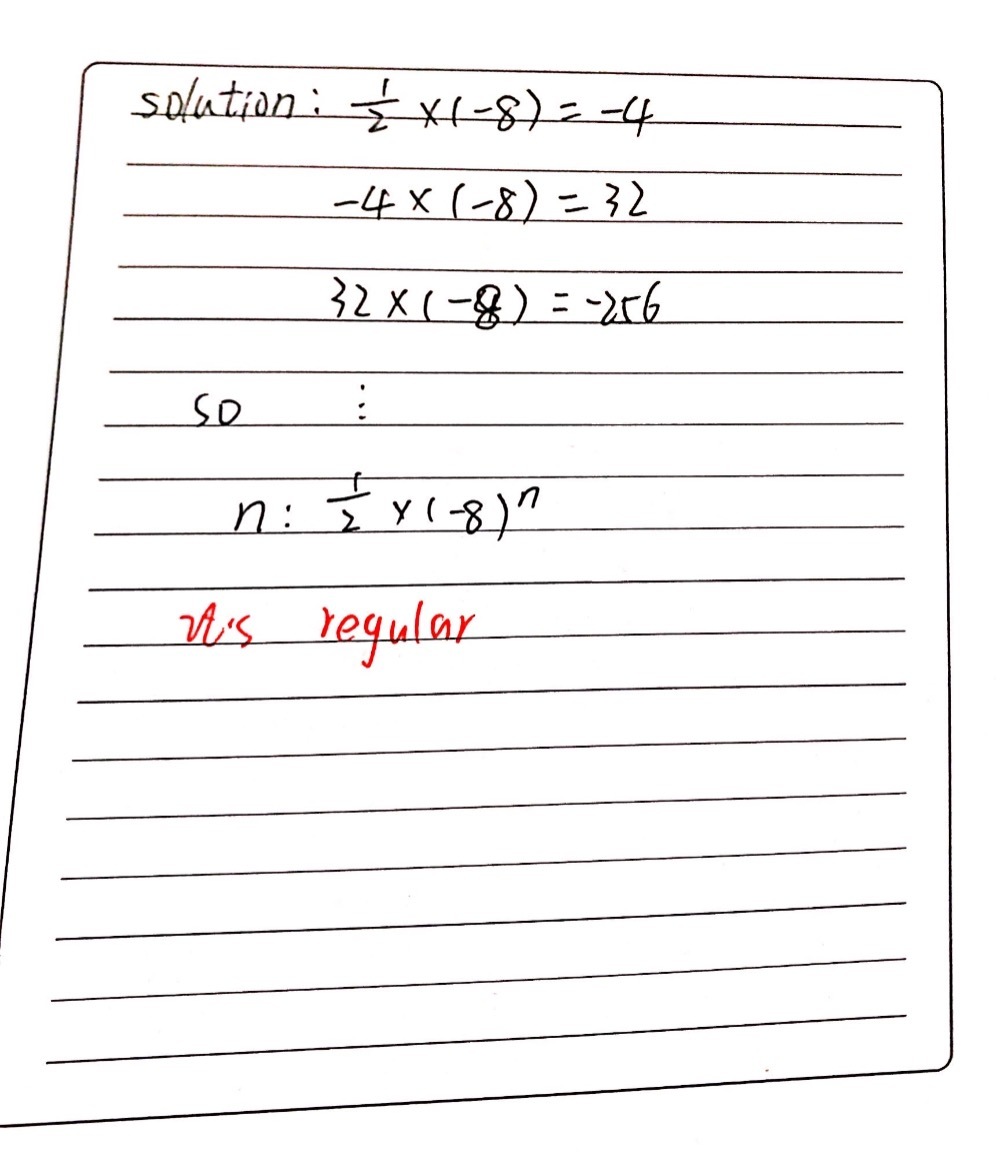 solution: 1/2 ×(-8) = -4
-4 × (-8) = 32
32 × (-8) = -256
so ⋮
n: 1/2 ×(-8)ⁿ
It's regular